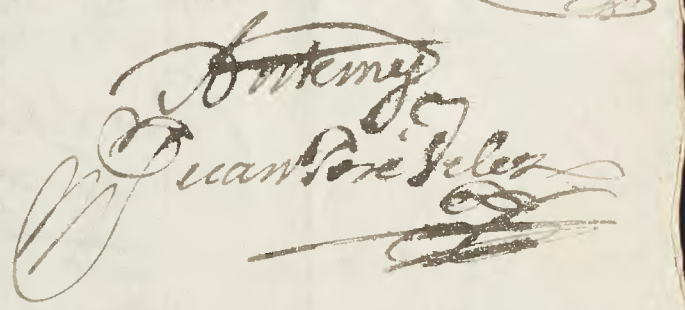 Antemy
Juan Jose Velez